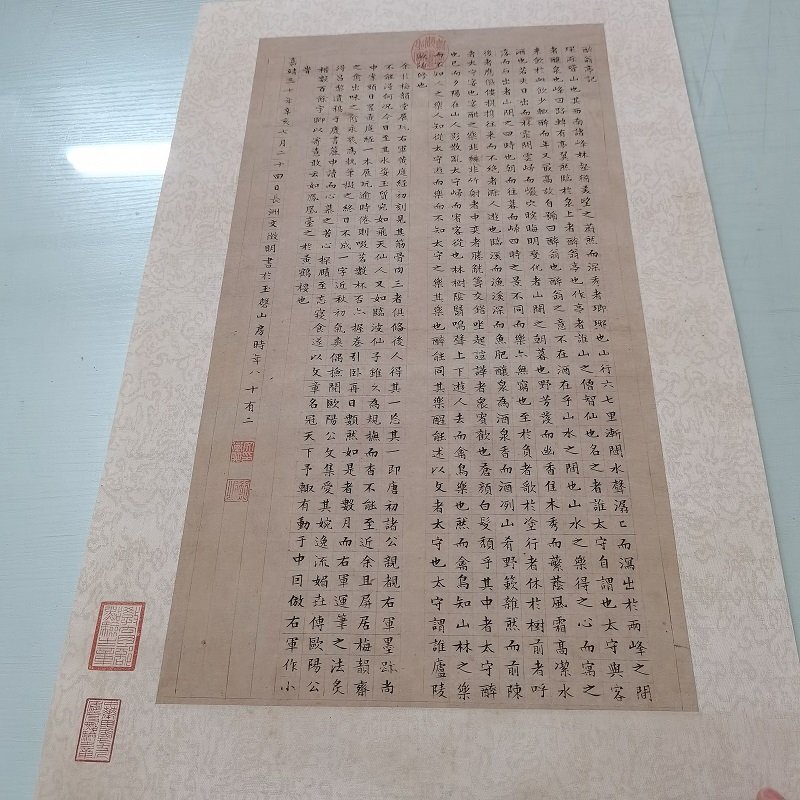 醉翁亭記
環滁皆山也其西南諸峰林壑猶美望之蔚然而深秀者瑯琊也山行六七里漸聞水聲潺〻而瀉出於兩峰之間
者釀泉也峰回路轉有亭翼然臨於泉上者醉翁亭也作亭者誰山之僧智仙也名之者誰太守自謂也太守與客
來飲於此飲少輒醉而年又最高故自號曰醉翁也醉翁之意不在酒在乎山水之間也山水之樂得之心而寓之
酒也若夫日出而林霏開雲歸而巖穴暝晦明變化者山間之朝暮也野芳發而幽香佳木秀而蘩陰風霜高潔水
落而石出者山間之四時也朝而往暮而歸四時之景不同而樂亦無窮也至於負者歌於塗行者休於樹前者呼
後者應傴僂提攜往來而不絕者滁人遊也臨溪而漁溪深而魚肥釀泉為酒泉香而酒冽山肴野蔌雜然而前陳
者太守宴也宴酣之樂非絲非竹射者中奕者勝觥籌交錯坐起諠譁者衆賓歡也蒼顏白髮頹乎其中者太守醉
也已而夕陽在山人影散亂太守歸而賓客從也林樹陰翳鳴聲上下遊人去而禽鳥樂也然而禽鳥知山林之樂
而不知人之樂人知從太守遊而樂而不知太守之樂其樂也醉能同其樂醒能述以文者太守也太守謂誰廬陵
歐陽脩也
余於梅韻堂展玩右軍黃庭經初刻見其筋骨肉三者俱備後人得其一忘其一即唐初諸公親覩右軍墨跡尚
不能得何況今日至其水姿玉質宛如飛天仙人又如臨波仙子雖久為規撫而杳不能至近余且屏居梅韻齋
中日置黃庭經一本展玩逾時倦則啜茗數杯握卷引臥再日數然如是者數月而右軍運筆之法炙
之愈出味之愈永執筆擬之終日不成一字近秋初氣爽偶撿閱歐陽公文集愛其婉逸流媚傳歐陽公
得昌黎遺稿于廢書簏中讀而心慕之苦心探賾至忘寢食遂以文章名冠天下予輒有動于中因倣右軍作小
楷數百餘字聊以寄意敢云如鳳凰臺之於黃鶴樓也
嘉靖三十年辛亥七月二十四日長洲文徵明書於玉磬山房時年八十有二